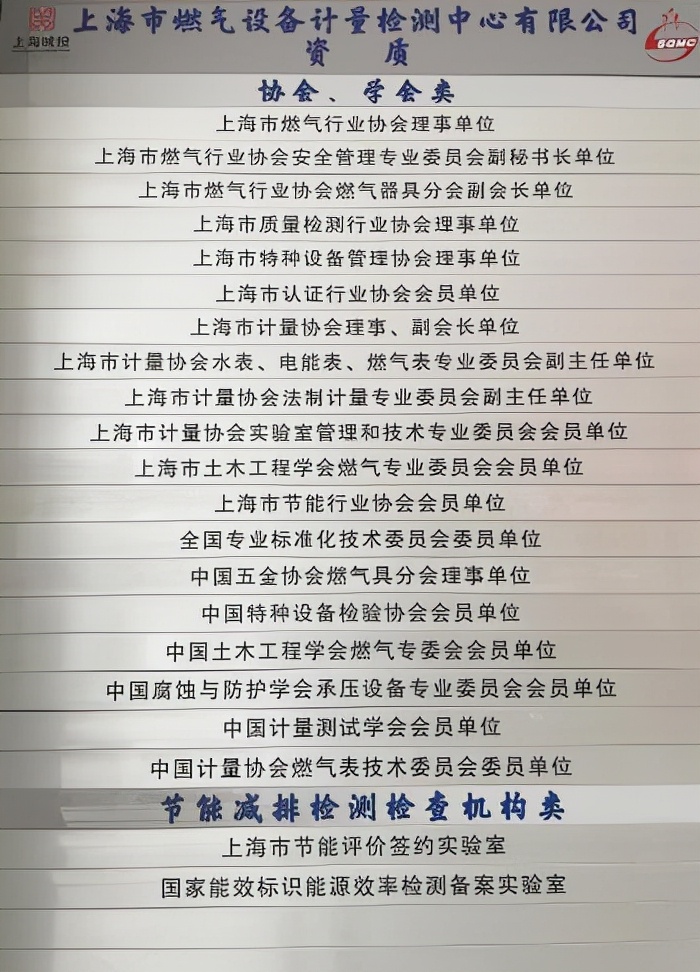 上海市燃气设备计量检测中心有限公司
资 质
协会、学会类
上海市燃气行业协会理事单位
上海市燃气行业协会安全管理专业委员会副秘书长单位
上海市燃气行业协会燃气器具分会副会长单位
上海市质量检测行业协会理事单位
上海市特种设备管理协会理事单位
上海市认证行业协会会员单位
上海市计量协会理事、副会长单位
上海市计量协会水表、电能表、燃气表专业委员会副主任单位
上海市计量协会法制计量专业委员会副主任单位
上海市计量协会实验室管理和技术专业委员会会员单位
上海市土木工程学会燃气专业委员会会员单位
上海市节能行业协会会员单位
全国专业标准化技术委员会委员单位
中国五金协会燃气具分会理事单位
中国特种设备检验协会会员单位
中国土木工程学会燃气专委会会员单位
中国腐蚀与防护学会承压设备专业委员会会员单位
中国计量测试学会会员单位
中国计量协会燃气表技术委员会委员单位
节能减排检测检查机构类
上海市节能评价签约实验室
国家能效标识能源效率检测备案实验室